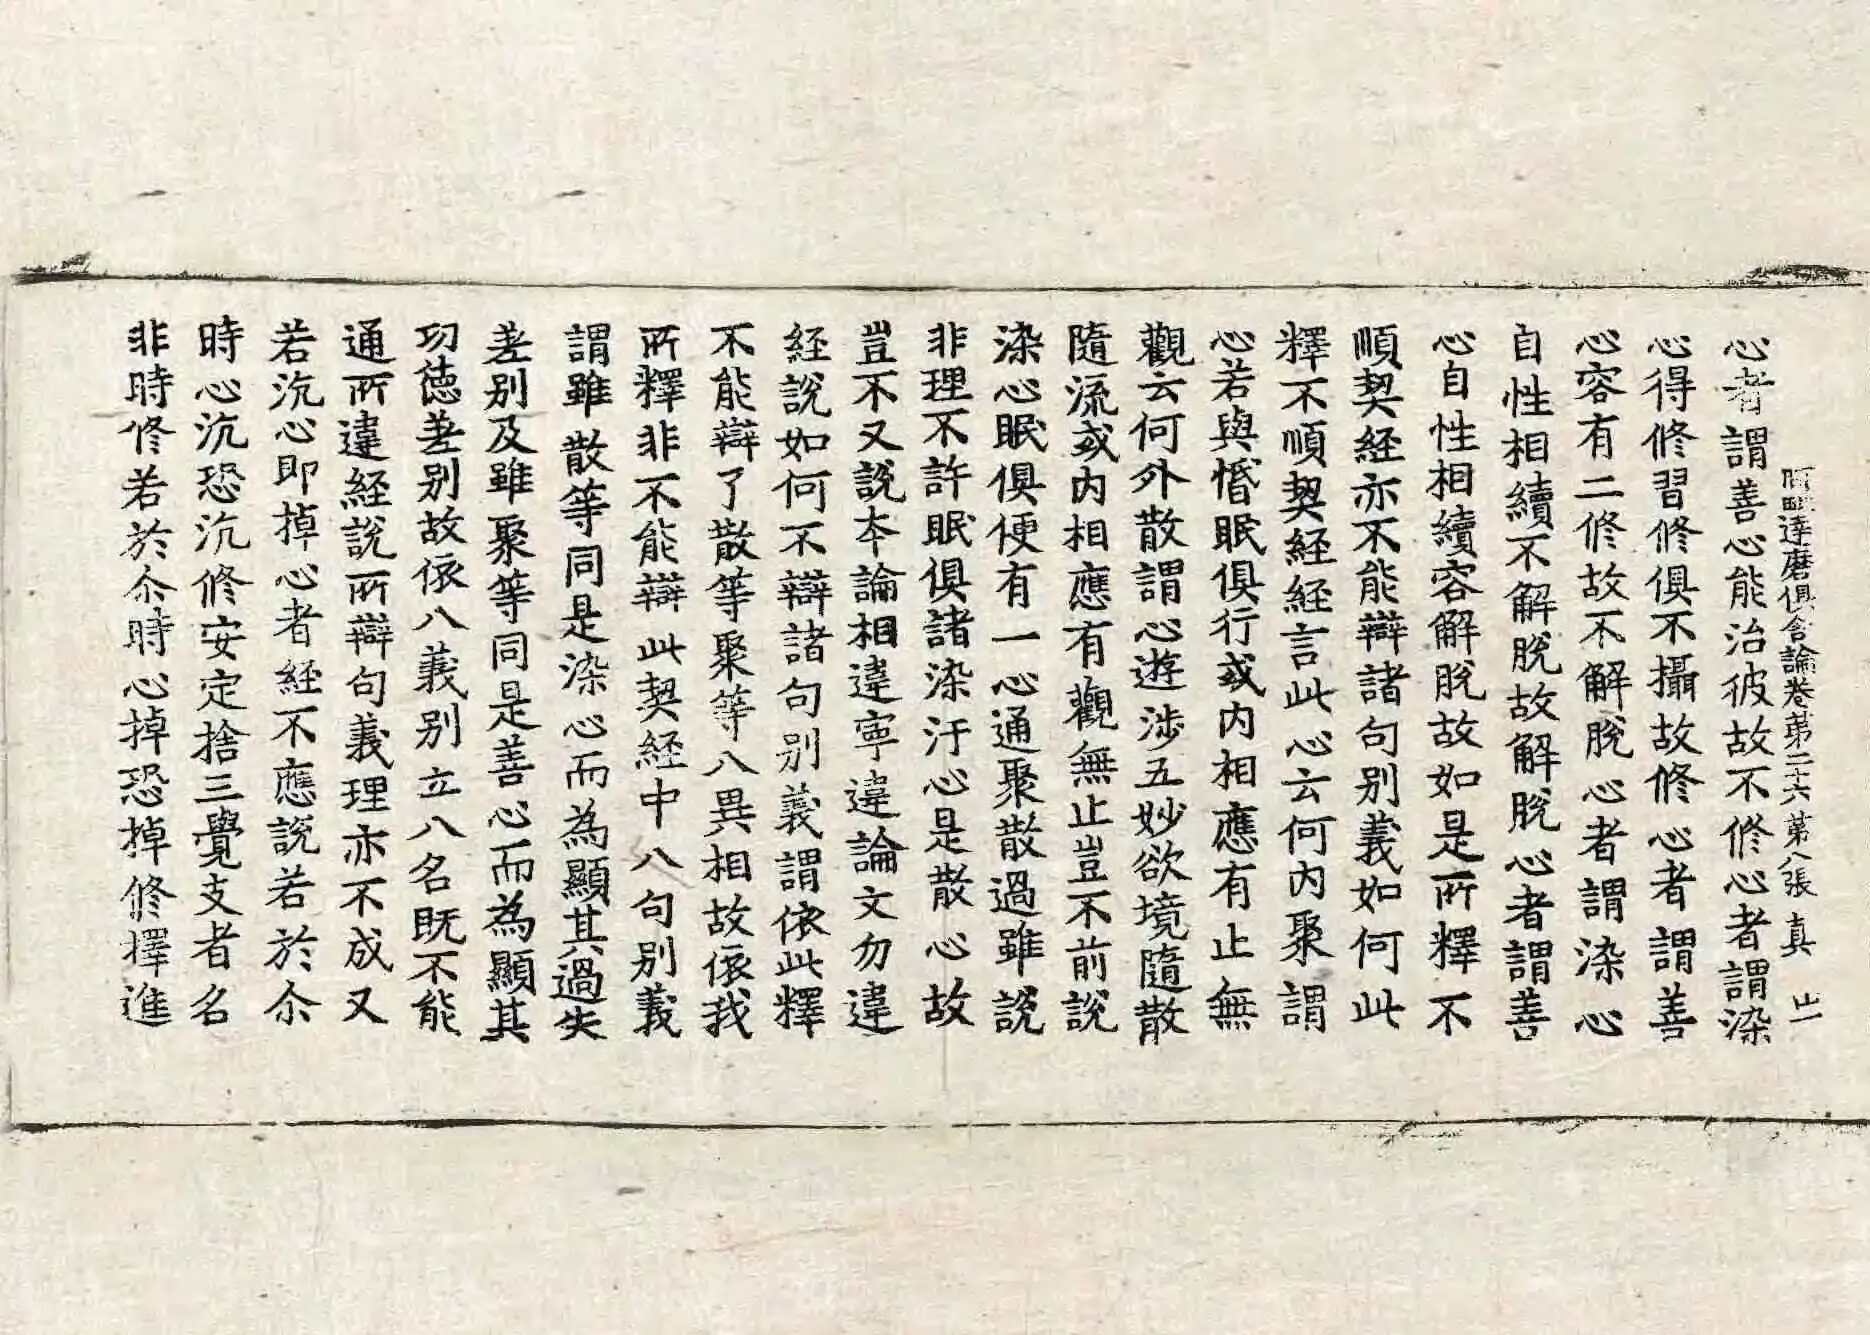 阿毗達磨俱舍論卷第二十六 第八張 真
心者謂善心能治彼故不修心者謂染
心得修習修俱不攝故修心者謂善
心容有二修故不解脫心者謂染心
自性相續不解脫故解脫心者謂善
心自性相續容解脫故如是所釋不
順契經亦不能辯諸句別義如何此
釋不順契經經言此心云何內聚謂
心若與惛眠俱行或內相應有止無
觀云何外散謂心遊涉五妙欲境隨散
隨流或內相應有觀無止豈不前說
染心眠俱便有一心通聚散過雖說
非理不許眠俱諸染汙心是散心故
豈不又說本論相違寧違論文勿違
經說如何不辯諸句別義謂依此釋
不能辯了散等聚等八異相故依我
所釋非不能辯此契經中八句別義
謂雖散等同是染心而為顯其過失
差別及雖聚等同是善心而為顯其
功德差別故依八義別立八名既不能
通所違經說所辯句義理亦不成又
若沉心即掉心者經不應說若於尒
時心沉恐沉修安定捨三覺支者名
非時修若於尒時心掉恐掉修擇進